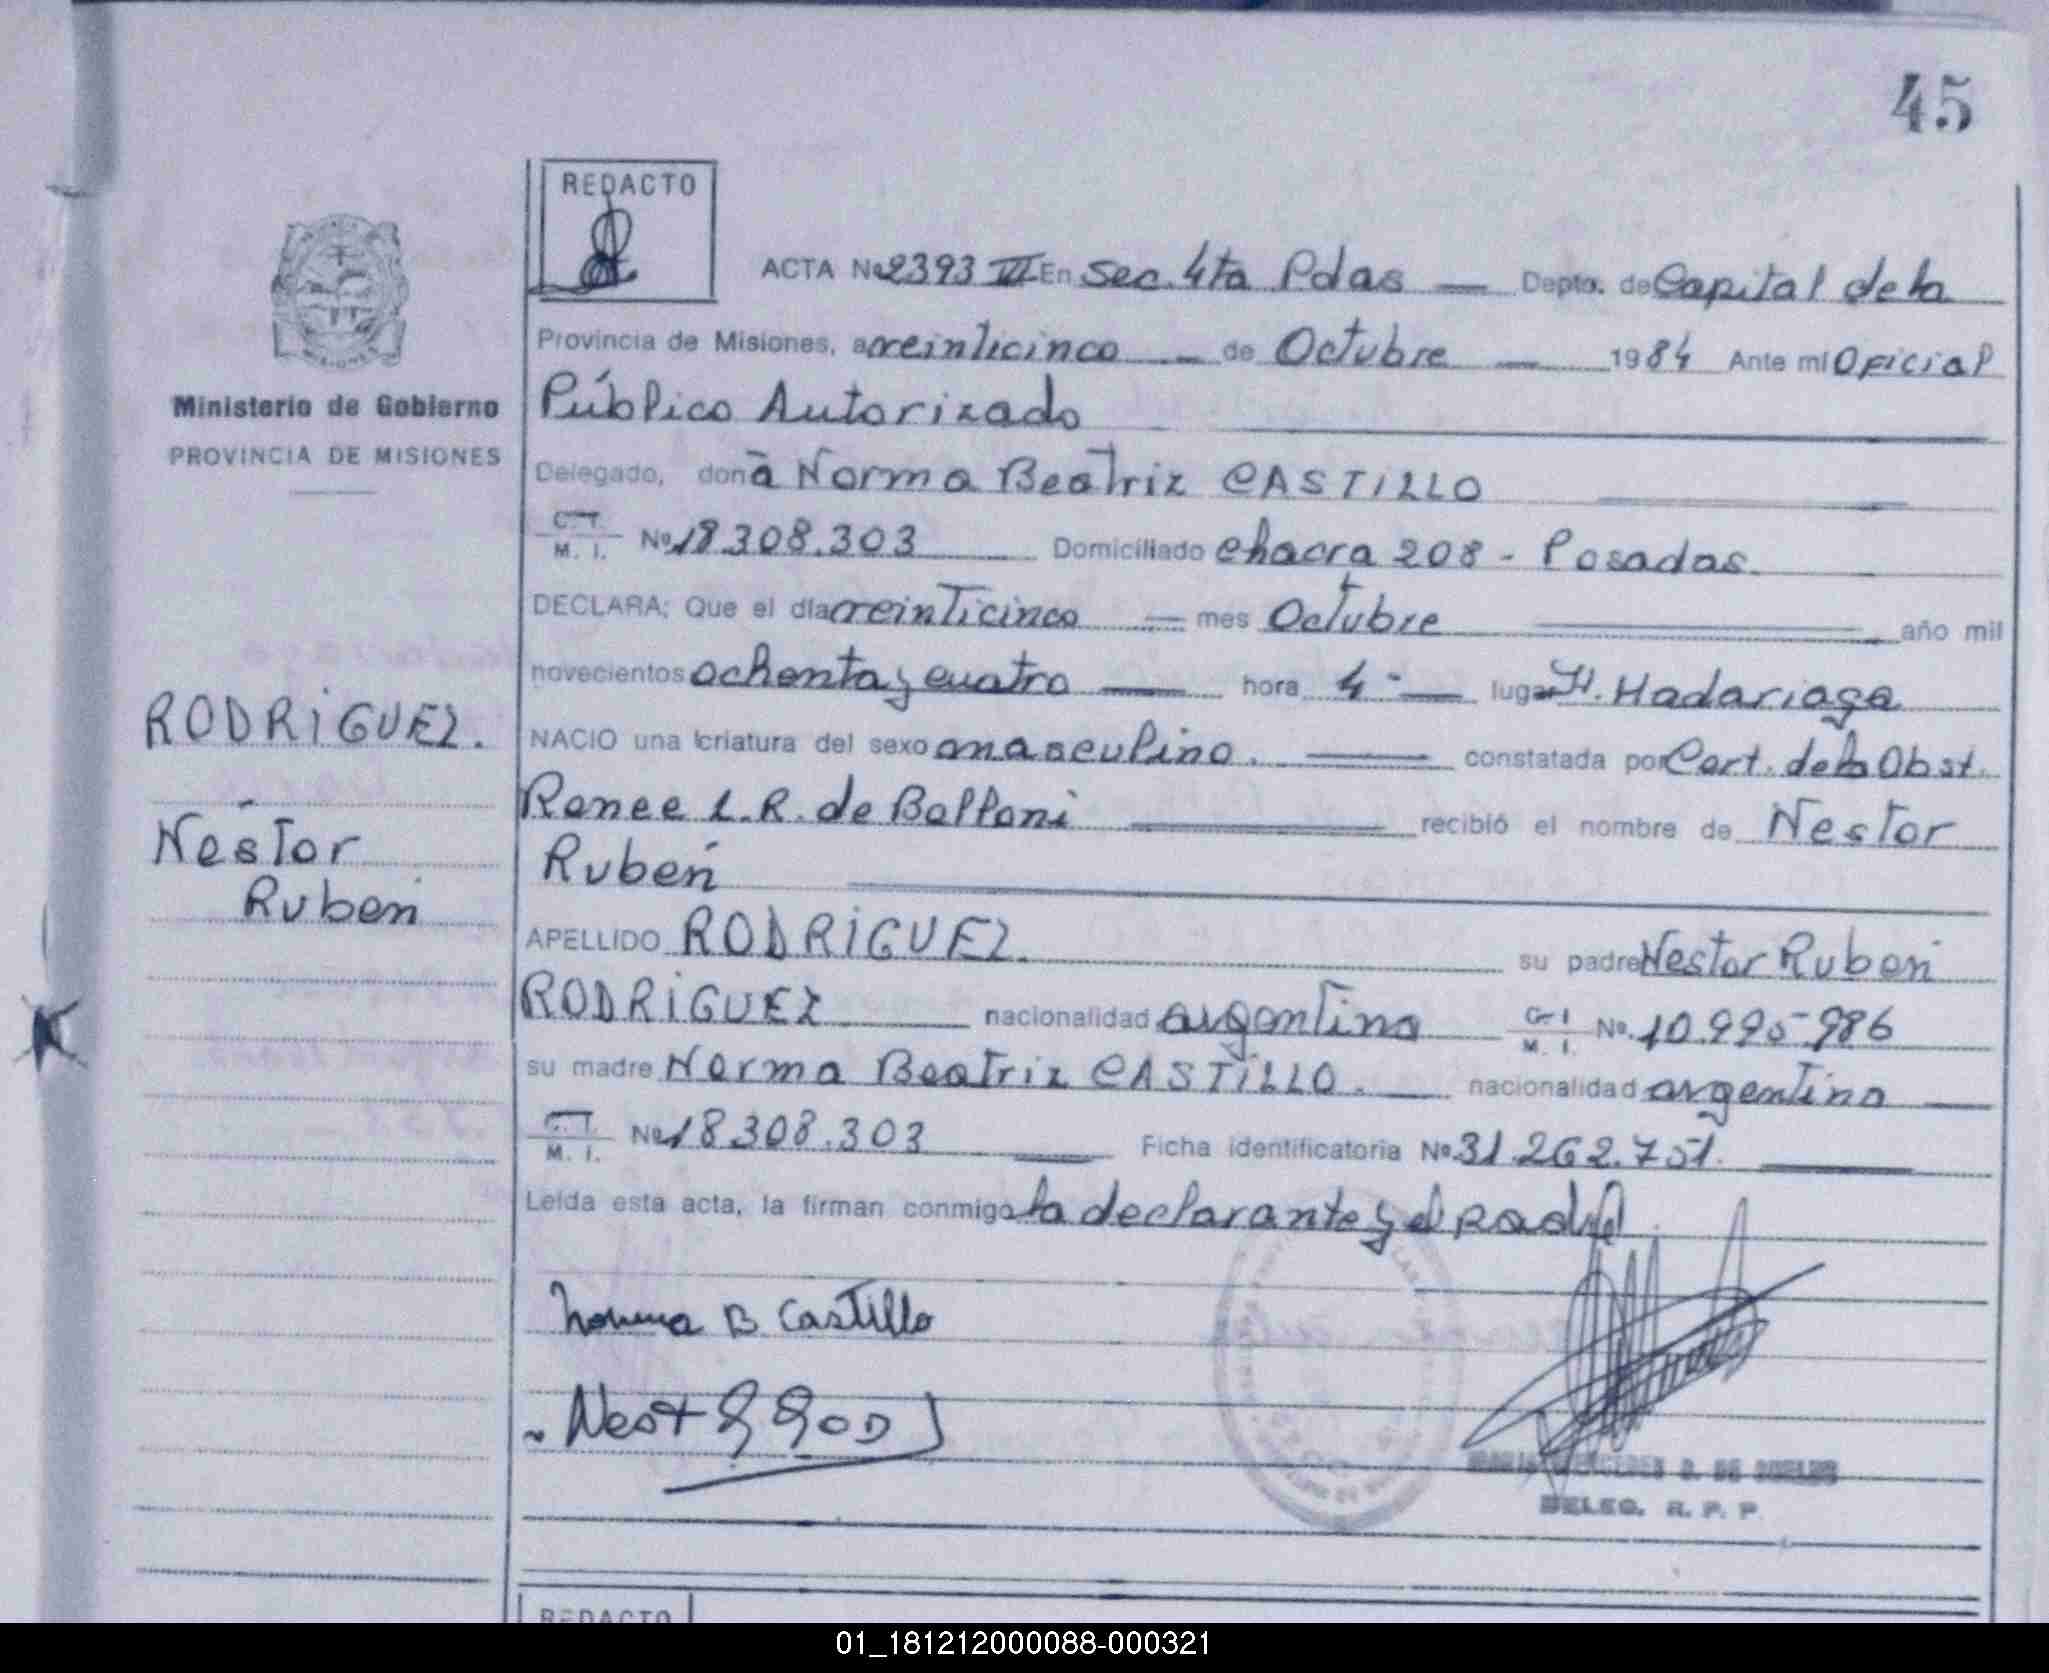 45
REDACTO
ACTA Nº 2393 VI En Sec. 4ta Pdas — Depto. de Capital de la
Provincia de Misiones, a veinticinco — de Octubre — 1984 Ante mi Oficial
Público Autorizado
Ministerio de Gobierno
PROVINCIA DE MISIONES
Delegado, doña Norma Beatriz CASTILLO
C. I.
M. I. Nº 18.308.303 Domiciliado chacra 208 - Posadas.
DECLARA: Que el día veinticinco — mes Octubre — año mil
novecientos ochenta y cuatro — hora 4 — lugar H. Madariaga
NACIO una criatura del sexo masculino. — constatada por Cert. de la Obst.
Renee L.R. de Belloni — recibió el nombre de Nestor
Rubén
RODRIGUEZ.
Néstor
Ruben
APELLIDO RODRIGUEZ. su padre Nestor Ruben
RODRIGUEZ nacionalidad argentino C. I.
M. I. Nº 10.995-986
su madre Norma Beatriz CASTILLO. — nacionalidad argentina —
C. I.
M. I. Nº 18.308.303 — Ficha identificatoria Nº 31.262.751. —
Leída esta acta, la firman conmigo la declarante y el padre.
Norma B Castillo
DELEG. R. P. P.
REDACTO
01_181212000088-000321